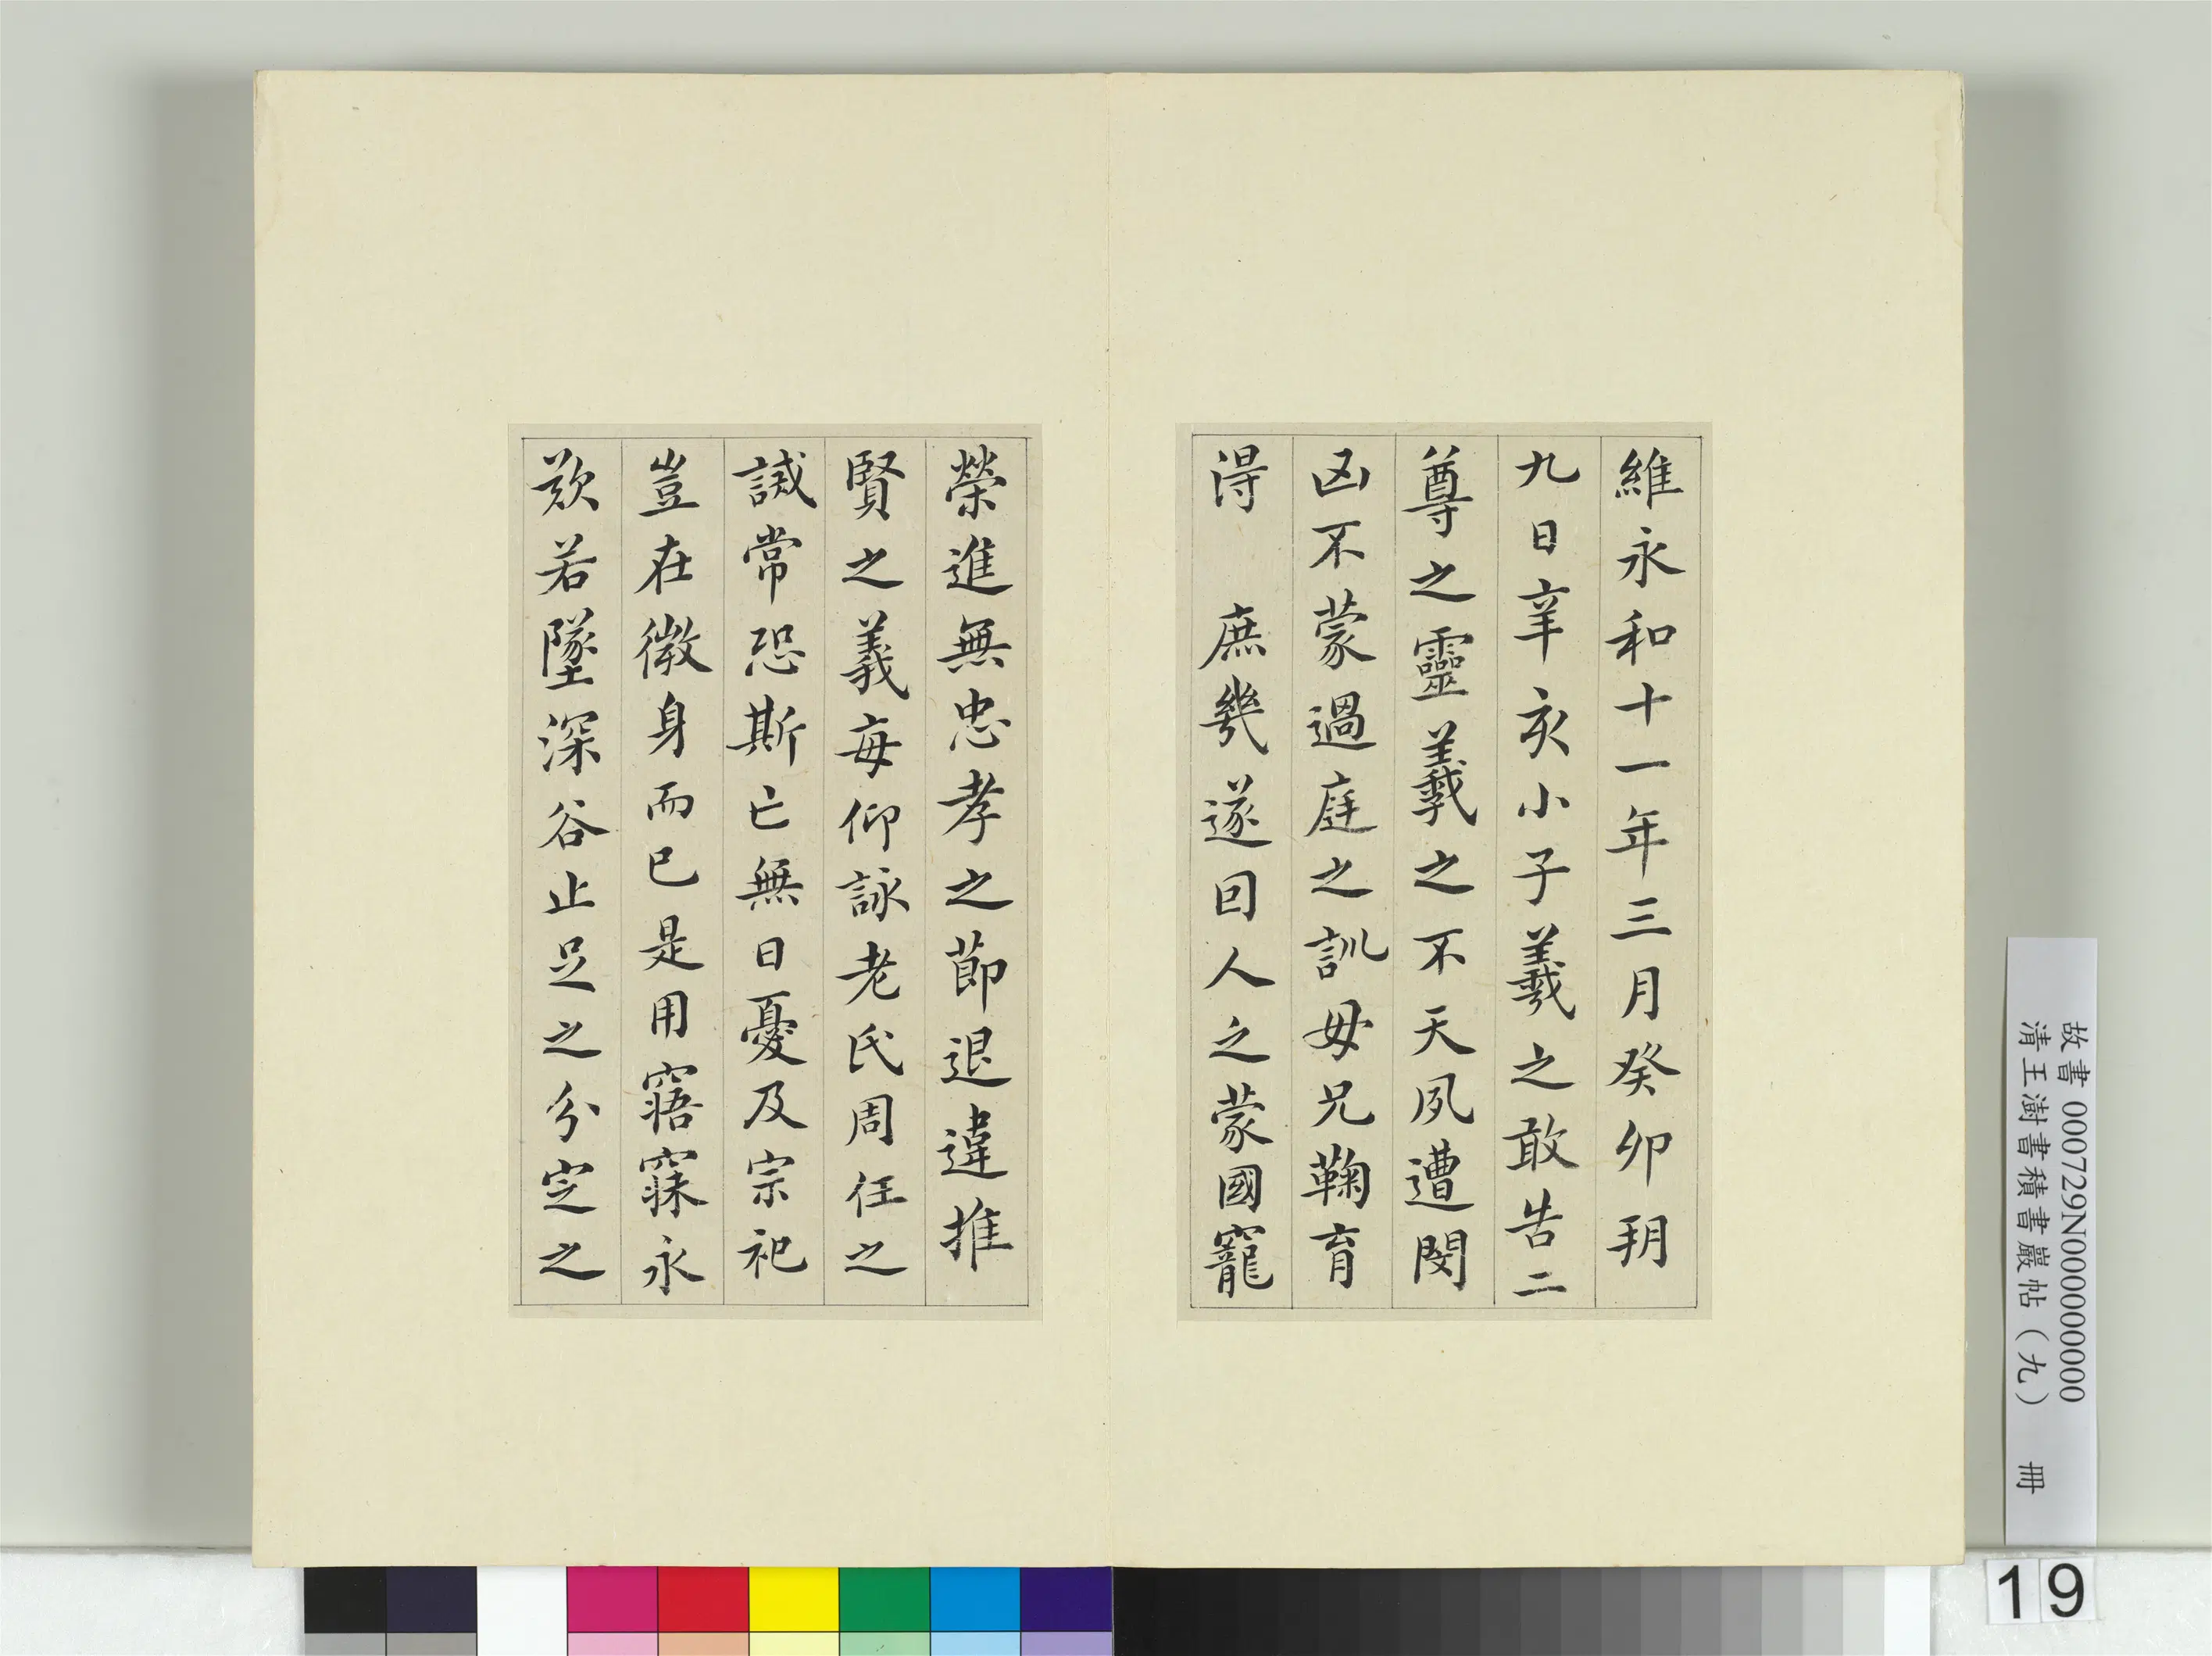 維永和十一年三月癸卯朔
九日辛亥小子羲之敢告二
尊之靈羲之不天夙遭閔
凶不蒙過庭之訓母兄鞠育
得 庶幾遂因人之蒙國寵
榮進無忠孝之節退違推
賢之義每仰詠老氏周任之
誡常恐斯亡無日憂及宗祀
豈在微身而已是用寤寐永
歎若墜深谷止足之分定之
故書 000729N000000000
清王澍書積書巖帖(九) 冊
19